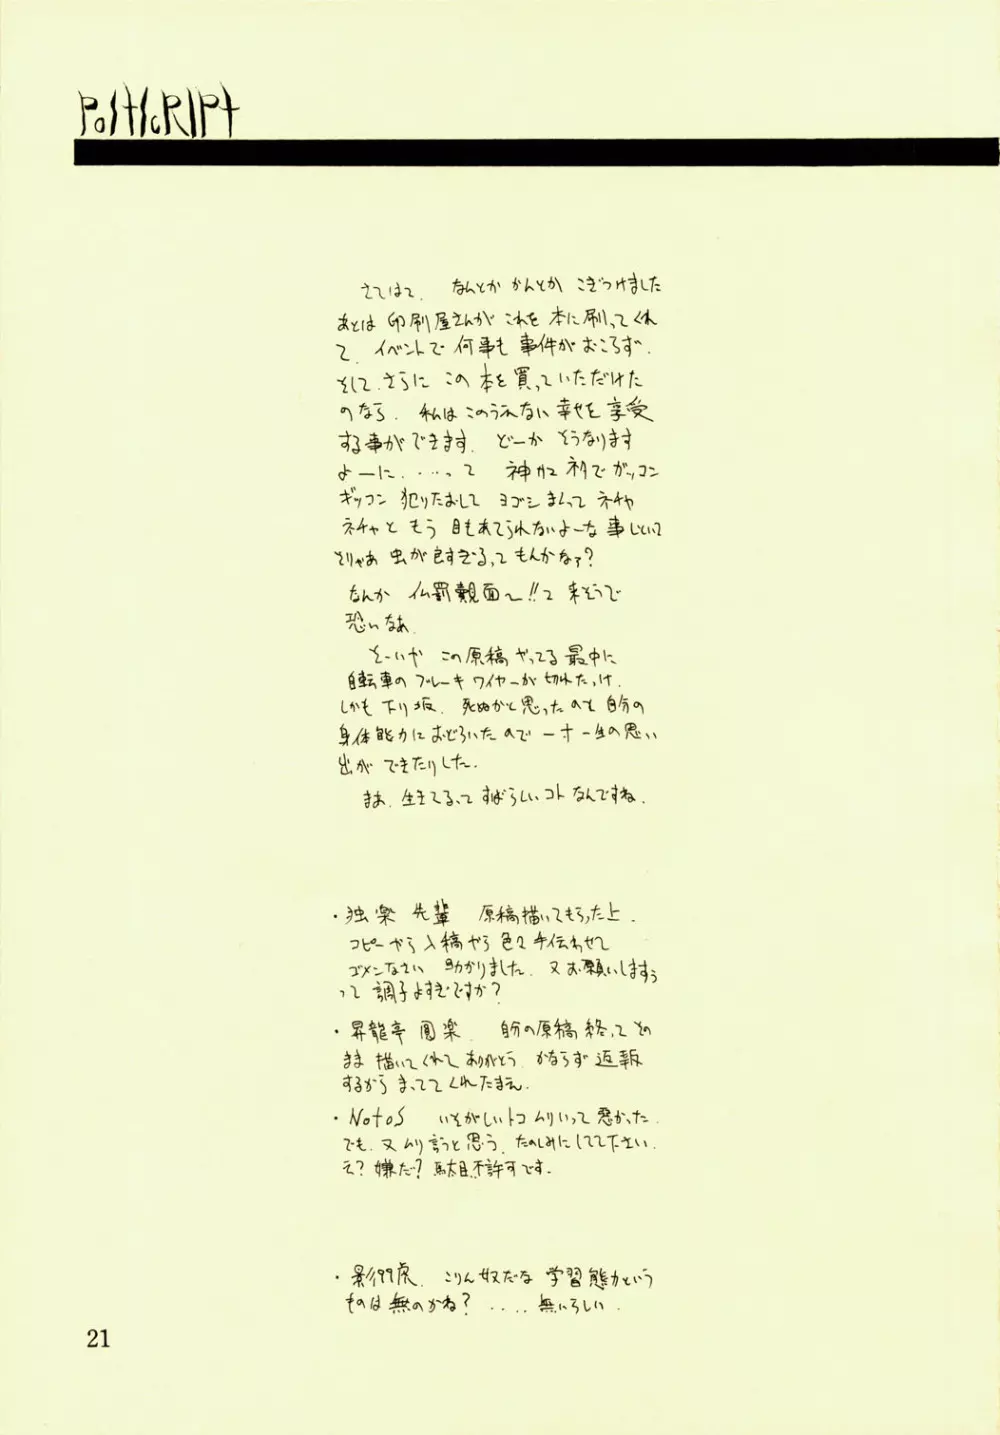 PostScRIPt
さてはて、なんとか かんとか こぎつけました
あとは 印刷屋さんが これを 本に刷ってくれ
て、イベントで 何事も 事件が おころず、
そして、さらに この 本を 買っていただけた
のなら、私は このうえない 幸せを 享受
する事ができます。どーか そうなります
よーに・・・・って 神カミネリで ガッコン
ギッコン 犯りたおして ヨゴシ まくって ネチャ
ネチャと もう 目もあてられないよーな 事しといて
そりゃあ 虫が良すぎるって もんかなァ?
なんか 仏罰覿面〜!!って 来そうで
恐いなあ。
そーいや この原稿 やってる 最中に
自転車の ブレーキ ワイヤーが 切れたっけ、
しかも 下り坂、死ぬかと思ったのと 自分の
身体能力に おどろいたので 一寸 一生の思い
出が できたりした。
まあ、生きてるって すばらしい コト なんですね、
・独楽 先輩 原稿描いてもらった上、
コピーやら 入稿やら 色々 手伝わせて
ゴメンなさい 助かりました、又 お願いしますぅ
って 調子よすぎですか?
・昇龍亭 圓楽、自分の原稿 終って その
まま 描いてくれて ありがとう、かならず 返報
するから まっててくれたまえ、
・NotoS いそがしいトコ ムリいって 悪かった、
でも、又 ムリ 言うと思う、たのしみにしてて下さい、
え? 嫌だ? 駄目、不許可です。
・影99虎、こりん奴だな 学習能力という
ものは 無のかね?・・・・無いらしい、
21